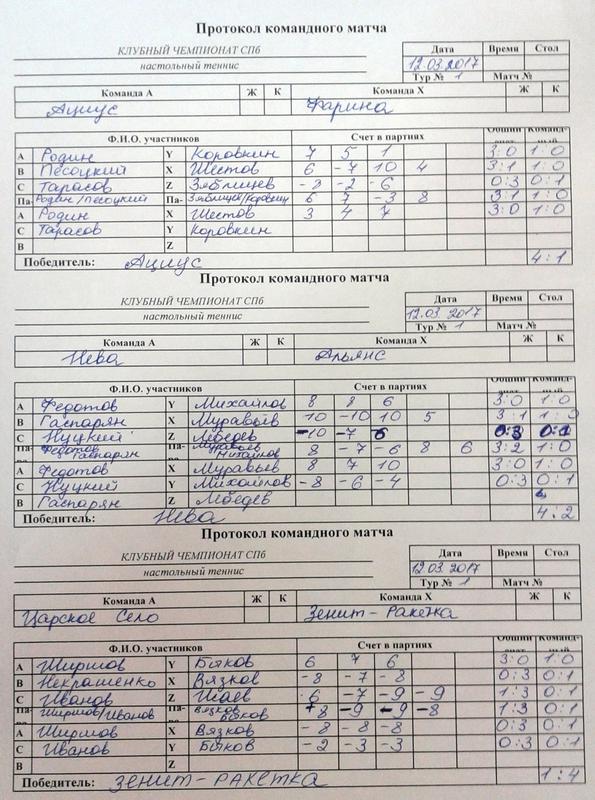 Протокол командного матча
КЛУБНЫЙ ЧЕМПИОНАТ СПб Дата Время Стол
настольный теннис 12.03.2017
Тур № 1 Матч №
Команда А Ж К Команда Х Ж К
Ациус Фарина
Ф.И.О. участников Счет в партиях Общий счет Команд-
A Родин Y Коровкин 7 5 1 3:0 1:0
B Песоцкий X Шестов 6 -7 10 4 3:1 1:0
C Тарасов Z Зяблицев -2 -6 0:3 0:1
Па- Родин/Песоцкий Па- 6 7 -3 8 3:1 1:0
A Родин X Шестов 3 4 7 3:0 1:0
C Тарасов Y Коровкин
B Z
Победитель: Ациус 4:1
Протокол командного матча
КЛУБНЫЙ ЧЕМПИОНАТ СПб Дата Время Стол
настольный теннис 12.03.2017
Тур № 1 Матч №
Команда А Ж К Команда Х Ж К
Нева Альянс
Ф.И.О. участников Счет в партиях Общий счет Команд-ный
A Федотов Y Михайлов 8 8 6 3:0 1:0
B Гаспарян X Муравьёв 10 -10 10 5 3:1 1:0
C Нуцкий Z Лебедев -10 -7 6 0:3 0:1
Па- Федотов Гаспарян Па- Муравьев Михайлов 8 -7 -6 8 6 3:2 1:0
A Федотов X Муравьев 8 7 10 3:0 1:0
C Нуцкий Y Михайлов -8 -6 -4 0:3 0:1
B Гаспарян Z Лебедев
Победитель: Нева 4:2
Протокол командного матча
КЛУБНЫЙ ЧЕМПИОНАТ СПб Дата Время Стол
настольный теннис 12.03.2017
Тур № 1 Матч №
Команда А Ж К Команда Х Ж К
Царское Село Зенит-Ракетка
Ф.И.О. участников Счет в партиях Общий Команд-ный
A Ширшов Y Быков 6 7 6 3:0 1:0
B Некрашенко X Вязков -8 -7 -8 0:3 0:1
C Иванов Z Шаев 6 -7 -9 -9 1:3 0:1
Па-ра Ширшов/Иванов Па-ра Вязков Быков 8 -9 -9 -8 1:3 0:1
A Ширшов X Вязков -8 -8 -8 0:3 0:1
C Иванов Y Быков -2 -3 -3 0:3 0:1
B Z
Победитель: Зенит-Ракетка 1:4